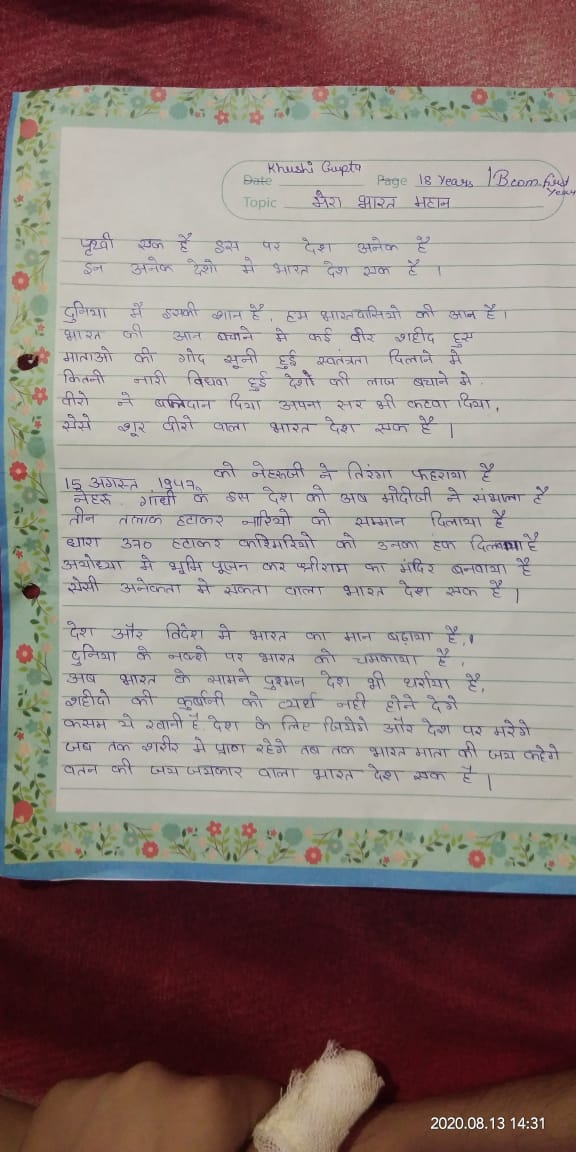 Khushi Gupta
Date Page 18 Years / B com. first year
Topic मेरा भारत महान
पृथ्वी एक है इस पर देश अनेक है
इन अनेक देशो मे भारत देश एक है ।
दुनिया में इसकी शान है, हम भारतवासियो की आन है।
भारत की आन बचाने मे कई वीर शहीद हुए
माताओ की गोद सूनी हुई स्वतंत्रता दिलाने मे
कितनी नारी विधवा हुई देशो की लाज बचाने मे.
वीरो ने बलिदान दिया अपना सर भी कटवा दिया,
ऐसे शूर वीरो वाला भारत देश एक है |
15 अगस्त 1947 को नेहरूजी ने तिरंगा फहराया है
नेहरू गांधी के इस देश को अब मोदीजी ने संभाला है
तीन तलाक हटाकर नारियो को सम्मान दिलाया है
धारा 370 हटाकर कश्मिरियो को उनका हक दिलाया है
अयोध्या मे भूमि पूजन कर श्रीराम का मंदिर बनवाया है
ऐसी अनेकता मे एकता वाला भारत देश एक है |
देश और विदेश मे भारत का मान बढ़ाया है,।
दुनिया के नक्शे पर भारत को चमकाया है,
अब भारत के सामने दुश्मन देश भी थर्राया है,
शहीदो की कुर्बानी को व्यर्थ नही होने देगे
कसम ये खानी है देश के लिए जियेगे और देश पर मरेगे
जब तक शरीर मे प्राण रहेगे तब तक भारत माता की जय कहेगे
वतन की जय जयकार वाला भारत देश एक है |
2020.08.13 14:31